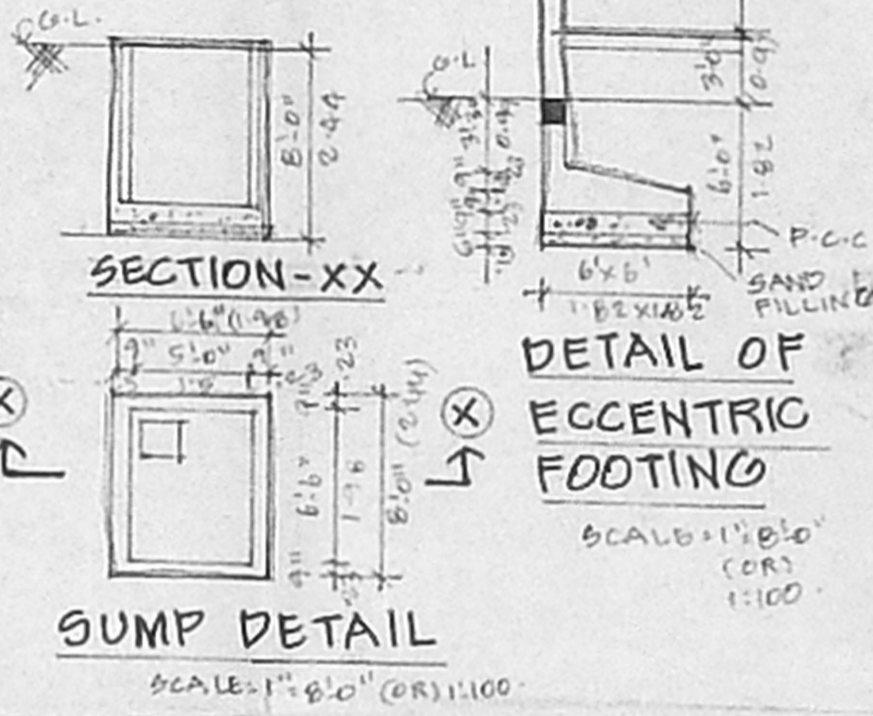 G.L.
8'-0"
2.44
SECTION-XX
6'-6" (1.98)
9" 5'-0" 9"
23
6'-6"
1.98
8'-0" (2.44)
9"
X
X
SUMP DETAIL
SCALE:1"=8'-0" (OR) 1:100.
G.L
3'-0"
(0.9)
6'-0"
1.82
P.C.C
SAND
FILLING
6'X6'
DETAIL OF
ECCENTRIC
FOOTING
SCALE:1"=8'-0"
(OR)
1:100.